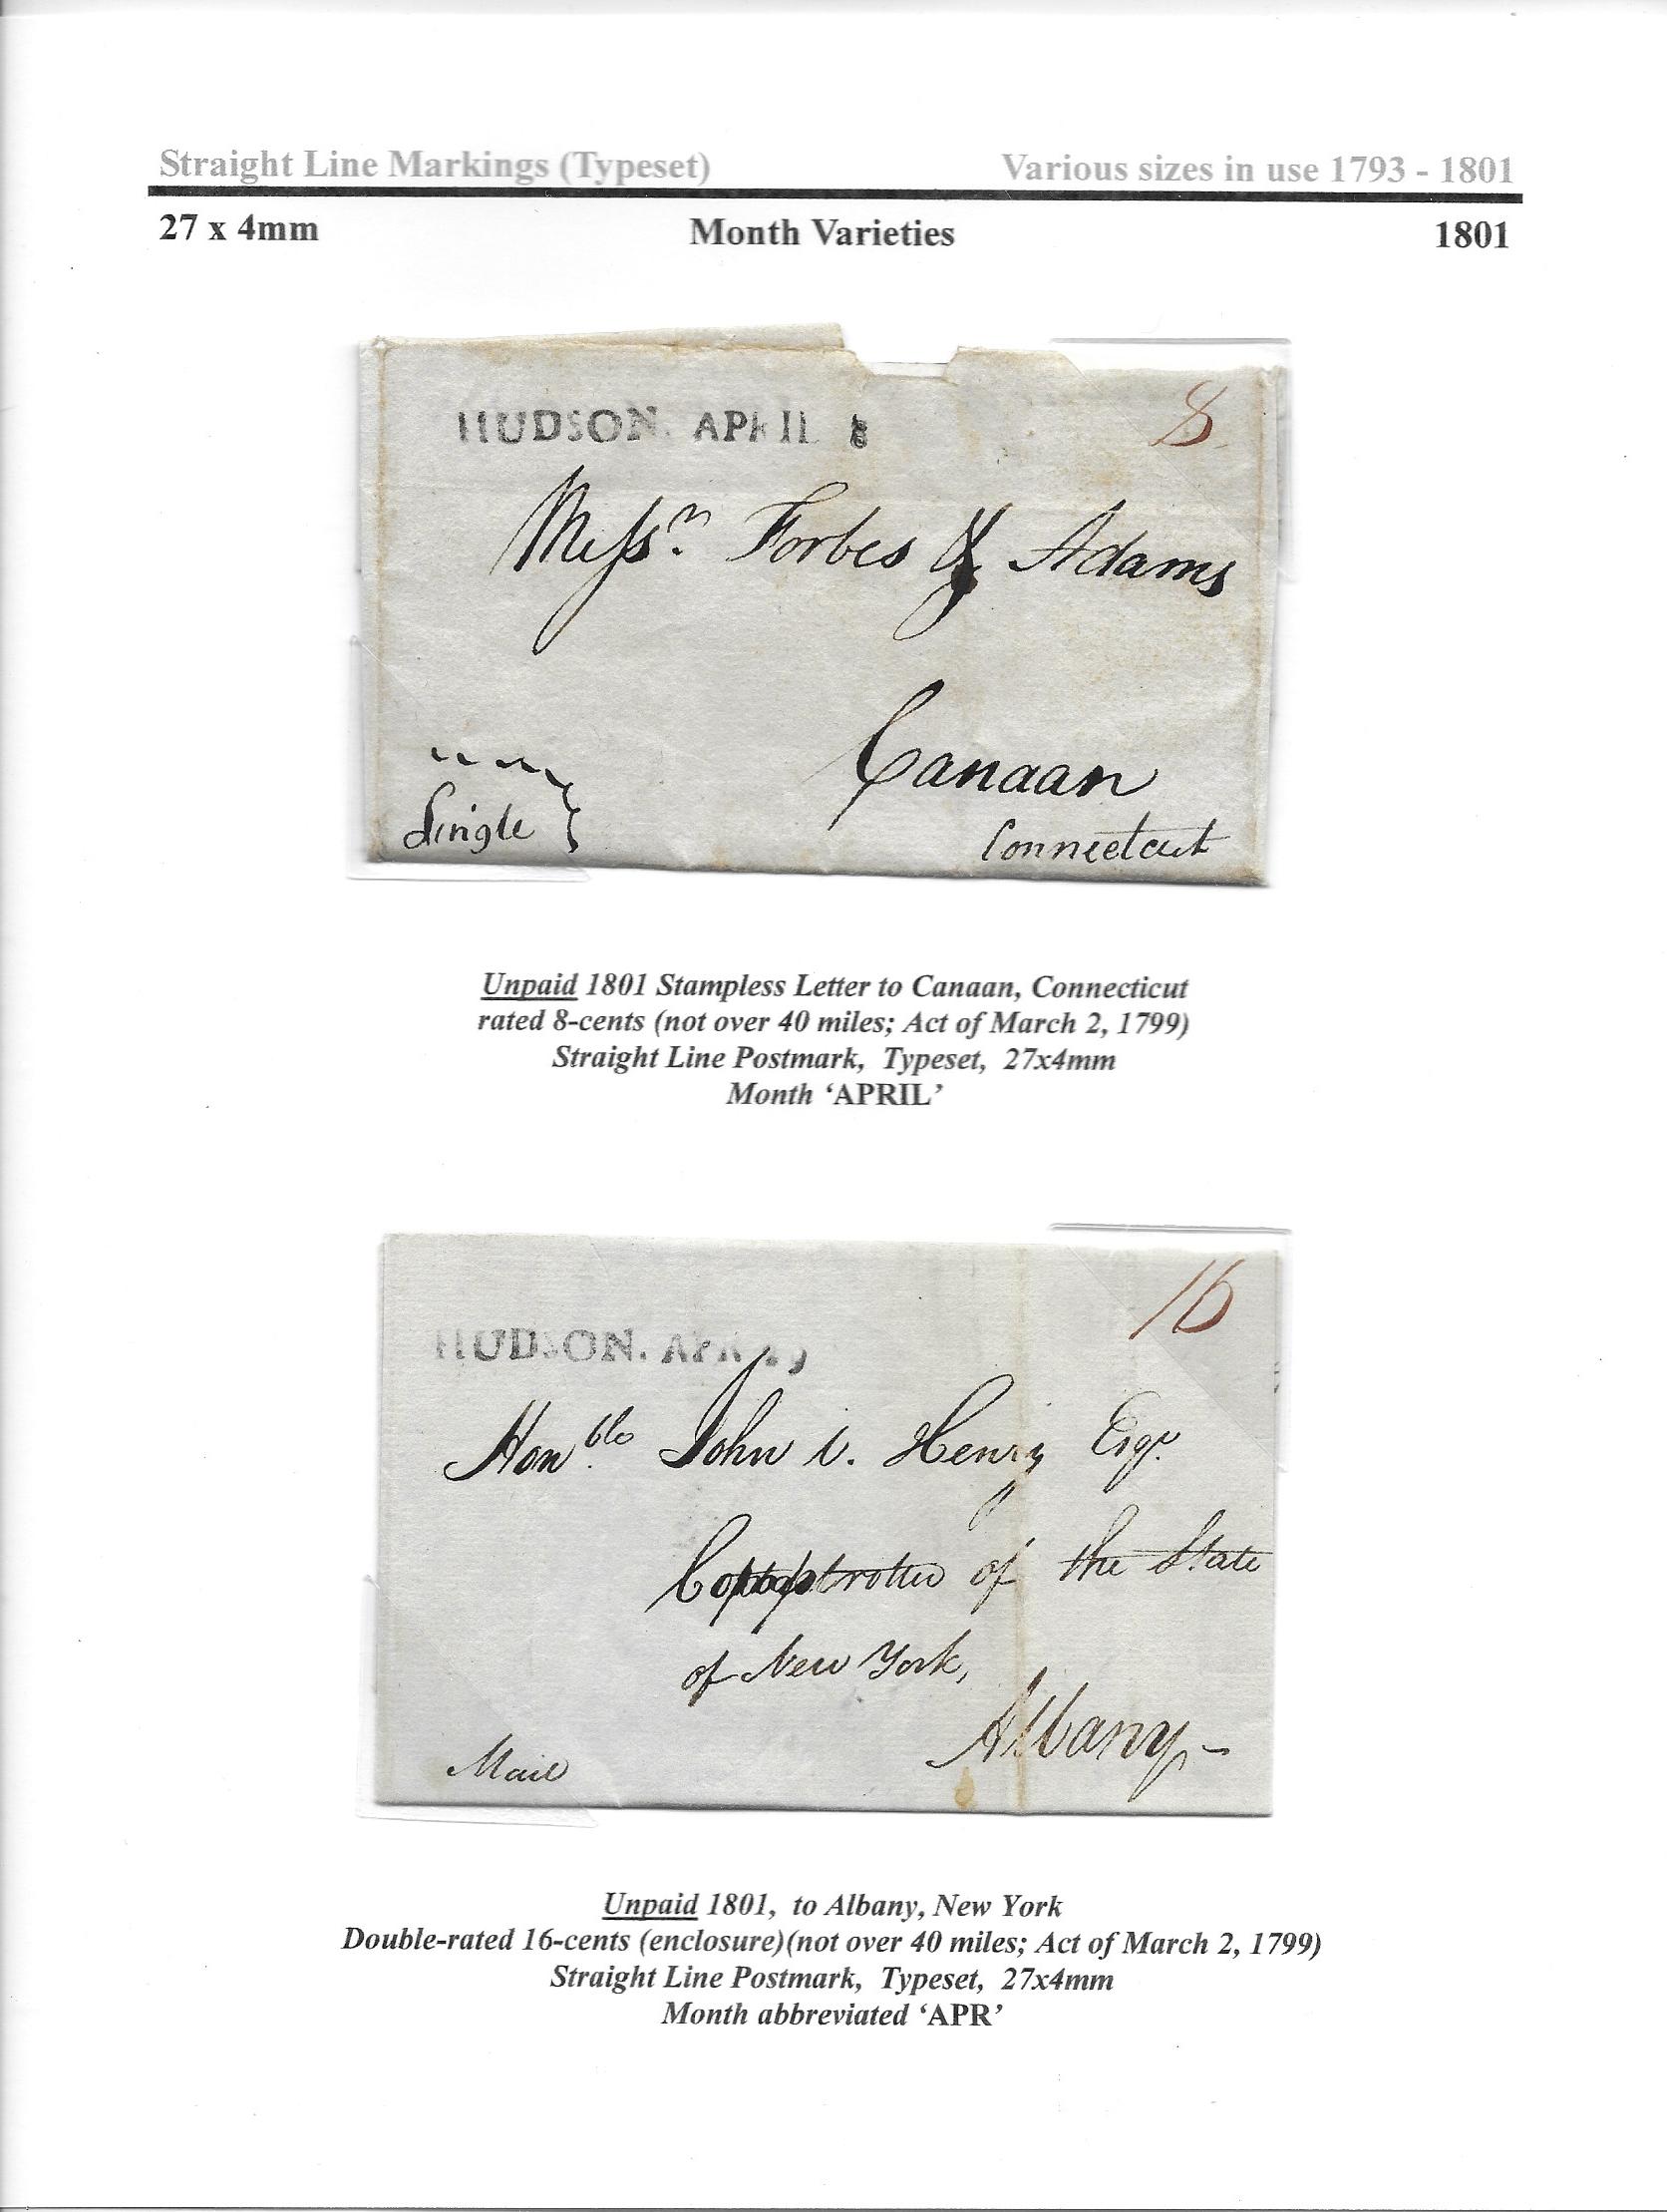 Straight Line Markings (Typeset) Various sizes in use 1793 - 1801
27 x 4mm Month Varieties 1801
HUDSON. APRIL 8
8
Messrs. Forbes & Adams
Canaan
Single
Connecticut
Unpaid 1801 Stampless Letter to Canaan, Connecticut
rated 8-cents (not over 40 miles; Act of March 2, 1799)
Straight Line Postmark, Typeset, 27x4mm
Month ‘APRIL’
16
HUDSON. APR
Honble. John V. Henry Esqr.
of the State
of New York,
Albany
Mail
Unpaid 1801, to Albany, New York
Double-rated 16-cents (enclosure)(not over 40 miles; Act of March 2, 1799)
Straight Line Postmark, Typeset, 27x4mm
Month abbreviated ‘APR’